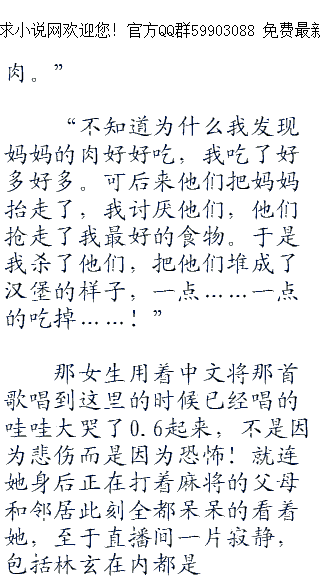 求小说网欢迎您！官方QQ群59903088 免费最新
肉。”
“不知道为什么我发现
妈妈的肉好好吃，我吃了好
多好多。可后来他们把妈妈
抬走了，我讨厌他们，他们
抢走了我最好的食物。于是
我杀了他们，把他们堆成了
汉堡的样子，一点……一点
的吃掉……！”
那女生用着中文将那首
歌唱到这里的时候已经唱的
哇哇大哭了0.6起来，不是因
为悲伤而是因为恐怖！就连
她身后正在打着麻将的父母
和邻居此刻全都呆呆的看着
她，至于直播间一片寂静，
包括林玄在内都是